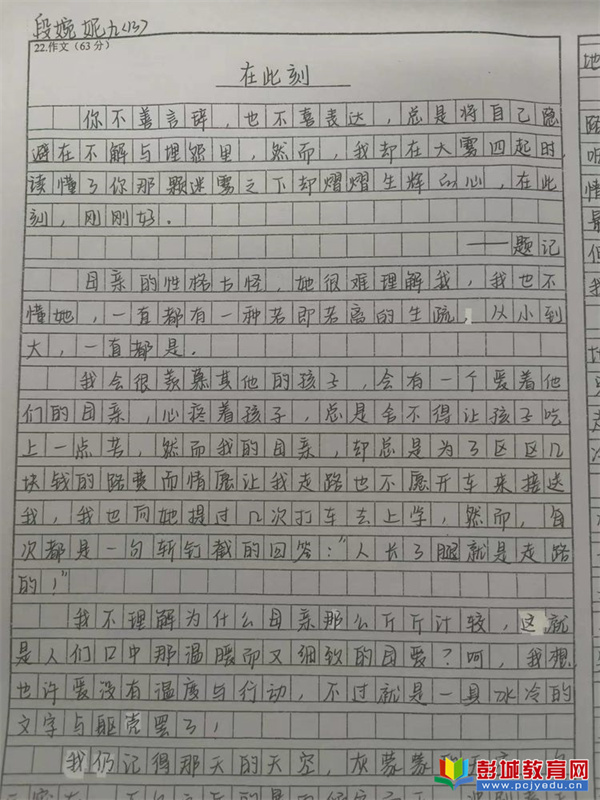 段婉妮九(13)
22.作文（63分）
在此刻
你不善言辞，也不喜表达，总是将自己隐
避在不解与埋怨里，然而，我却在大雾四起时，
读懂了你那颗迷雾之下却熠熠生辉的心，在此
刻，刚刚好．
——题记
母亲的性格古怪，她很难理解我，我也不
懂她，一直都有一种若即若离的生疏，从小到
大，一直都是．
我会很羡慕其他的孩子，会有一个爱着他
们的母亲，心疼着孩子，总是舍不得让孩子吃
上一点苦，然而我的母亲，却总是为了区区几
块钱的路费而情愿让我走路也不愿开车来接送
我，我也向她提过几次打车去上学，然而，每
次都是一句斩钉截的回答："人长了腿就是走路
的！"
我不理解为什么母亲那么斤斤计较，这就
是人们口中那温暖而又细致的母爱？呵，我想，
也许爱没有温度与行动，不过就是一具冰冷的
文字与躯壳罢了！
我仍记得那天的天空，灰蒙蒙
彭城教育网
www.pcjyedu.cn